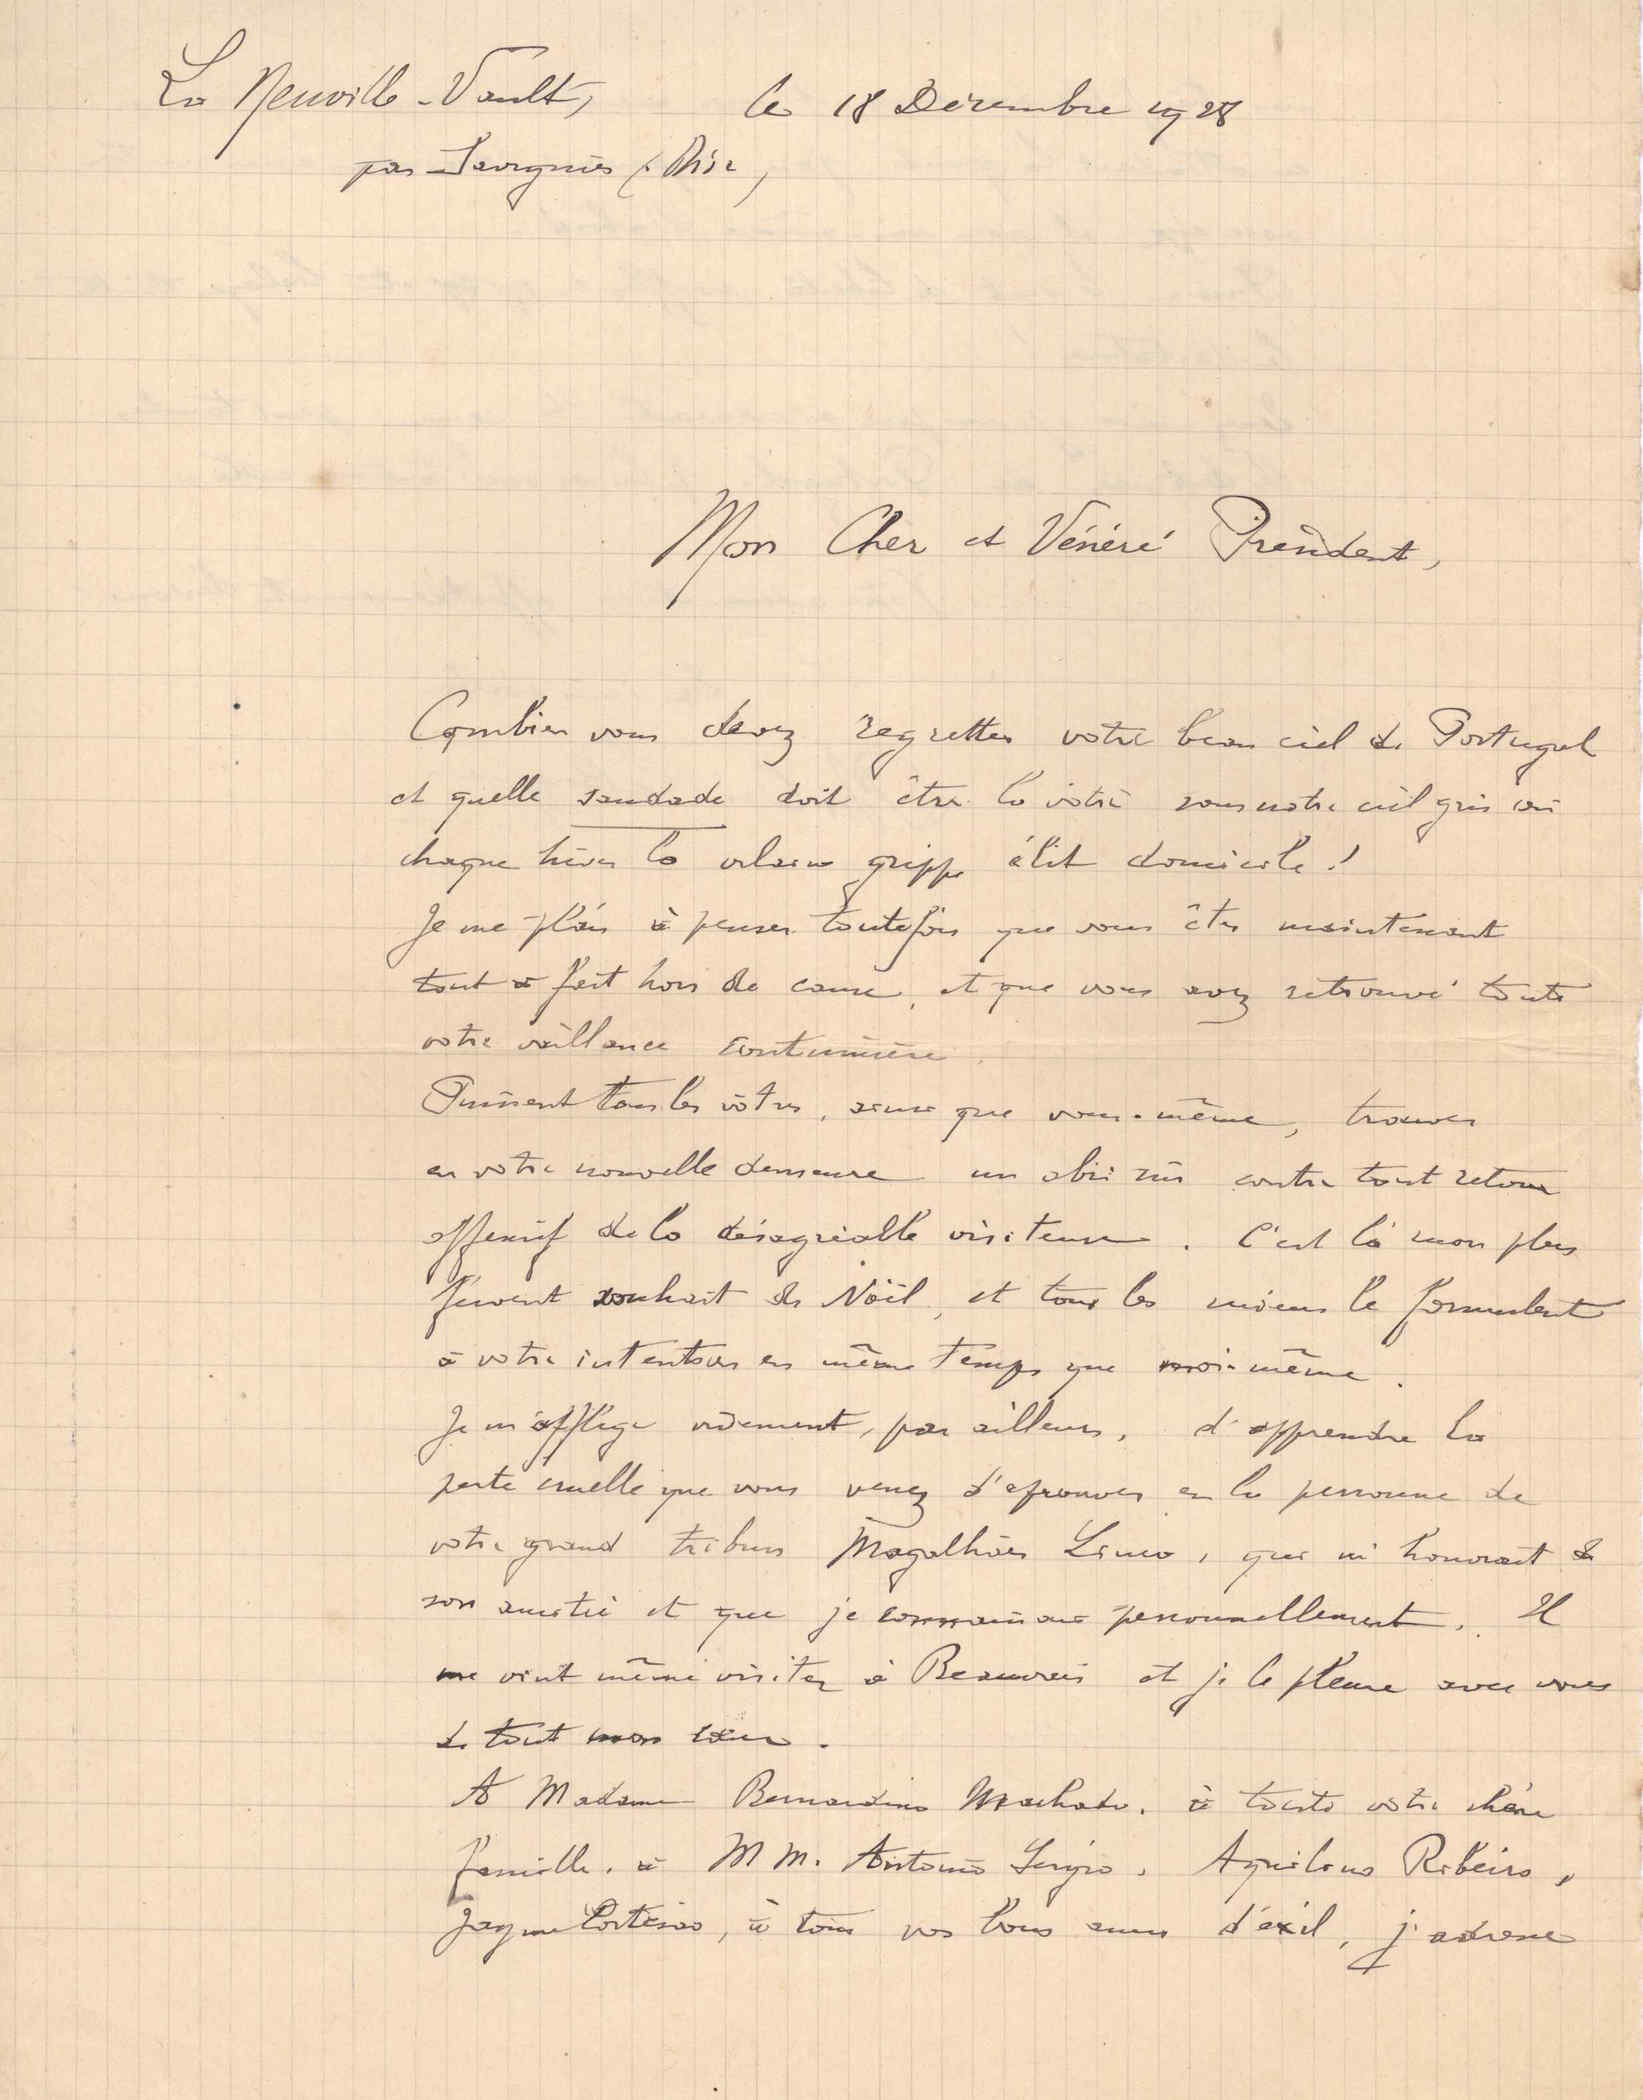 La Neuville-Vault, le 18 Décembre 1928
par Savignies (Oise)
Mon Cher et Vénéré Président,
Combien vous devez regretter votre beau ciel de Portugal
et quelle saudade doit être la vôtre sous notre ciel gris où
chaque hiver la vilaine grippe élit domicile !
Je me plais à penser toutefois que vous êtes maintenant
tout à fait hors de cause, et que vous avez retrouvé toute
votre vaillance coutumière.
Puissent tous les vôtres, ainsi que vous-même, trouver
en votre nouvelle demeure un abri sûr contre tout retour
offensif de la désagréable visiteuse. C'est là mon plus
fervent souhait de Noël, et tous les miens le formulent
à votre intention en même temps que moi-même.
Je m'afflige vivement, par ailleurs, d'apprendre la
perte cruelle que vous venez d'éprouver en la personne de
votre grand tribun Magalhães Lima, qui m'honorait de
son amitié et que je connaissais personnellement. Il
me vint même visiter à Beauvais et je le pleure avec vous
de tout mon cœur.
A Madame Bernardino Machado, à toute votre chère
famille, à MM. Antonio Sergio, Aquilino Ribeiro,
Jayme Cortesao, à tous vos bons amis d'exil, j'adresse